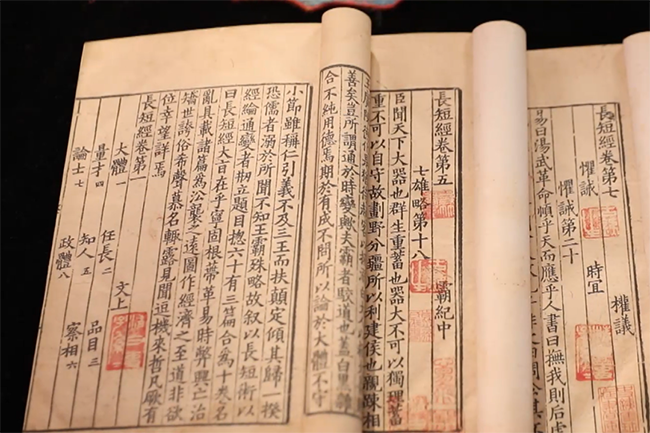 善矣豈所謂通於時變歟夫霸者駁道也蓋白黑雜
合不純用德焉期於有成不問所以論於大體不守
小節雖稱仁引義不及三王而扶顛定傾其歸一揆
恐儒者溺於所聞不知王霸殊略故叙以長短術以
經綸通變者刱立題目揔六十有三篇合為十卷名
曰長短經大旨在乎寧固根蔕革易時弊興亡治
亂具載諸篇為沿襲之逺圖作經濟之至道非欲
矯世誇俗希聲慕名輙露見聞逗機來哲凡厥有
位幸望詳焉
長短經卷第一
文上
大體一 任長二 品目三
量才四 知人五 察相六
論士七 政體八
長短經卷第五
霸紀中
七雄略第十八
臣聞天下大器也群生重蓄也器大不可以獨理蓄
重不可以自守故劃野分疆所以利建侯也親踈相
長短經卷第七
權議
懼誡 時宜
懼誡第二十
易曰湯武革命順乎天而應乎人書曰撫我則后虐